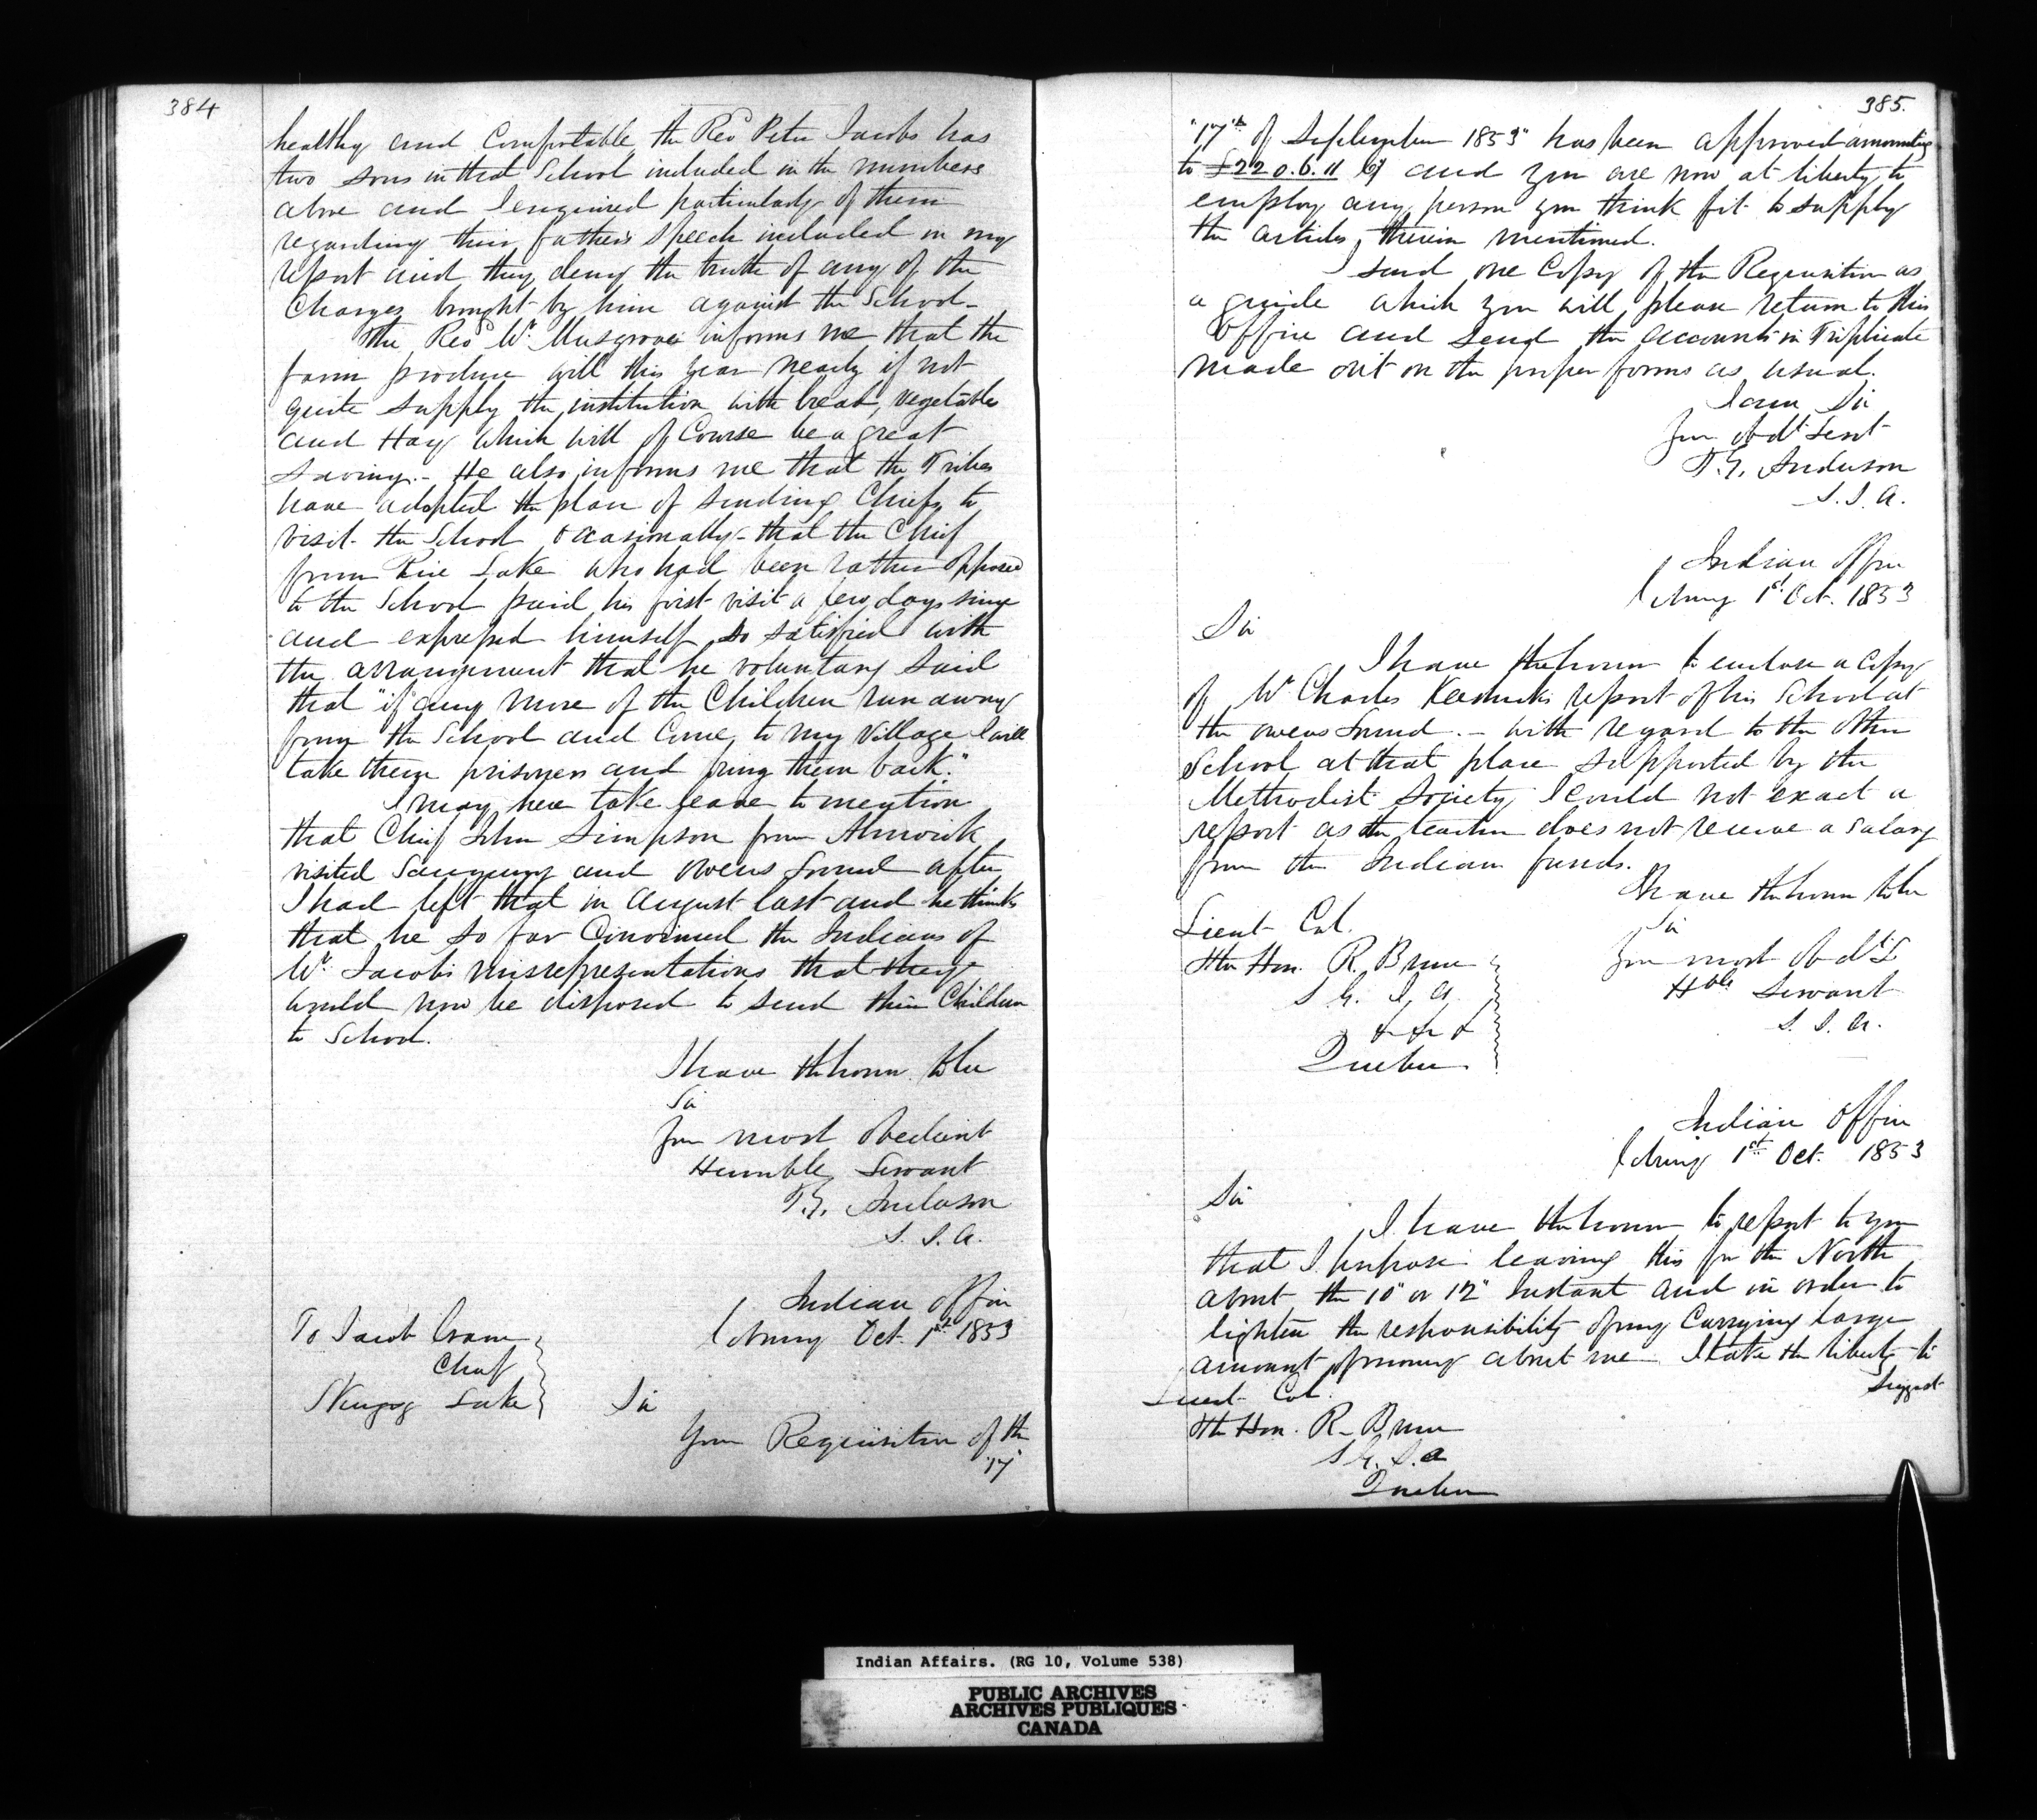 384
healthy and Comfortable, the Revd Peter Jacobs has
two sons in that School included in the numbers
above and I enquired particularly of them
regarding their father's speech included in my
report and they deny the truth of any of the
Charges brought by him against the School.
The Revd Mr. Musgrove informs me that the
farm produce will this year nearly if not
quite supply the institution with bread, vegetables
and Hay which will of Course be a great
saving. - He also informs me that the Tribes
have adopted the plan of sending Chiefs to
visit the School occasionally - that the Chief
from Rice Lake who had been rather opposed
to the School paid his first visit a few days since
and expressed himself so satisfied with
the arrangement that he voluntary said
that "if any more of the Children run away
from the School and Come to my Village I will
take them prisoners and bring them back."
I may here take leave to mention
that Chief John Simpson from Alnwick
visited Saugeeng and Owens Sound after
I had left that in August last and he thinks
that he so far Convinced the Indians of
Mr. Jacobs misrepresentations that they
would now be disposed to send their Children
to School.
I have the honor to be
Sir
Your most obedient
Humble Servant
T. G. Anderson
S. I. A.
Indian Office
Cobourg Oct. 1st 1853
To Jacob Crane
Chief
Skugog Lake
Sir
Your Requisition of the
"17"
385.
"17"th of September 1853" has been approved amounting
to £220.6.11 Cy and you are now at liberty to
employ any person you think fit to supply
the articles therein mentioned.
I send one Copy of the Requisition as
a guide which you will please return to this
Office and send the accounts in Triplicate
made out on the proper forms as usual.
I am Sir
Your obdt Servt
T. G. Anderson
S. I. A.
Indian Office
Cobourg 1st Oct. 1853
Sir
I have the honor to enclose a Copy
of Mr Charles Keeshick's report of his School at
the Owens Sound. - with regard to the other
School at that place supported by the
Methodist Society I could not exact a
report as the teacher does not receive a salary
from the Indian funds.
I have the honor to be
Sir
Your most obdt
Hble Servant
S. I. A.
Lieut Col.
The Hon. R. Bruce
S. G. I. A.
& & &
Quebec
Indian Office
Cobourg 1st Oct. 1853
Sir
I have the honor to report to you
that I purpose leaving this for the North
about the 10" or 12" Instant and in order to
lighten the responsibility of my Carrying large
amount of money about me I take the liberty to
suggest
Lieut Col.
The Hon. R. Bruce
S. G. I. A
Quebec
Indian Affairs. (RG 10, Volume 538)
PUBLIC ARCHIVES
ARCHIVES PUBLIQUES
CANADA